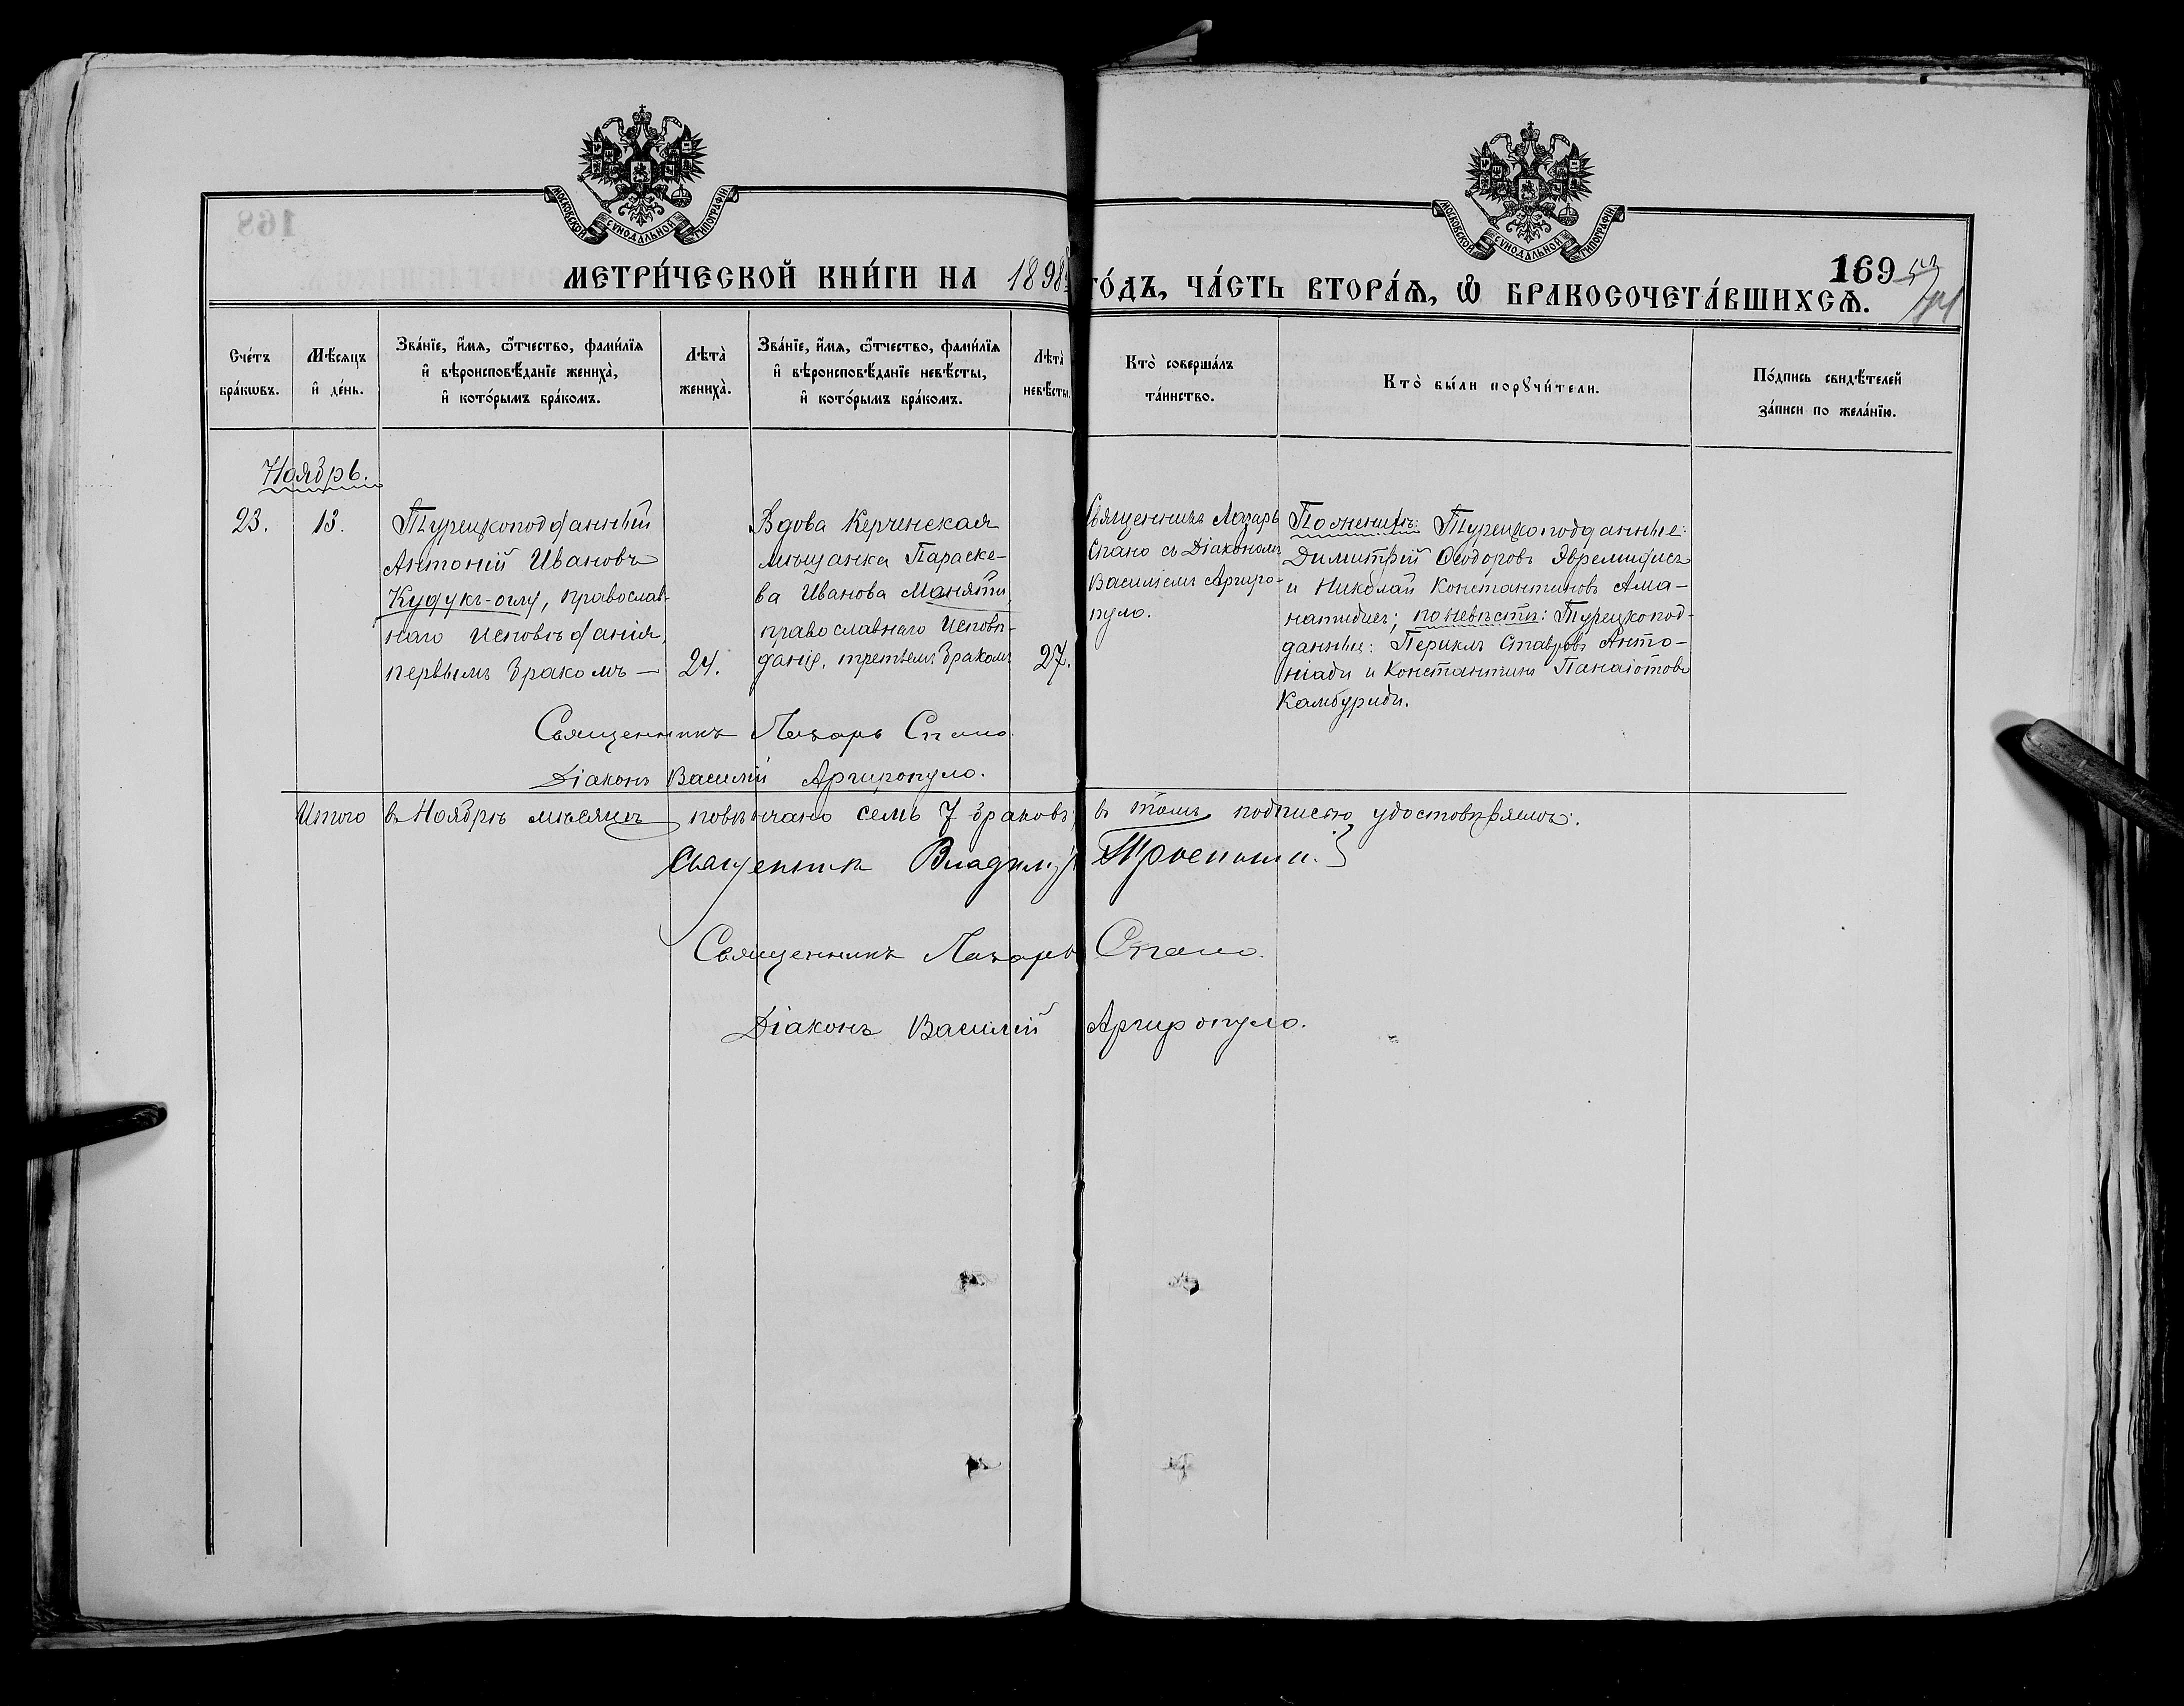 МОСКОВСКОЙ СѴНОДАЛЬНОЙ ТИПОГРАФІИ.
МОСКОВСКОЙ СѴНОДАЛЬНОЙ ТИПОГРАФІИ.
169
МЕТРИ́ЧЕСКОЙ КНИ́ГИ НА 1898 ГО́ДЪ, ЧА́СТЬ ВТОРА́Ѧ, Ѽ БРАКОСОЧЕТА́ВШИХСѦ.
Сче́тъ бра́кѡвъ.
Мѣ́сяцъ и҆ де́нь.
Зва́нїе, и҆́мя, ѻ҆́тчество, фами́лїя и҆ вѣроисповѣ́данїе жениха̀, и҆ кото́рымъ бра́комъ.
Лѣта̀ жениха̀.
Зва́нїе, и҆́мя, ѻ҆́тчество, фами́лїя и҆ вѣроисповѣ́данїе невѣ́сты, и҆ кото́рымъ бра́комъ.
Лѣта̀ невѣ́сты.
Кто̀ соверша́лъ та́инство.
Кто̀ бы́ли порꙋчи́тели.
По́дпись свидѣ́телей за́писи по жела́нїю.
Ноябрь.
23.
13.
Турецкоподданный
Антоній Ивановъ
Кудукъ-оглу, православ-
наго исповѣданія,
первымъ бракомъ —
24.
Вдова Керченская
мѣщанка Параске-
ва Иванова Маняти,
православнаго исповѣ-
данія, третьимъ бракомъ
27.
Священникъ Лазарь
Спано съ Діакономъ
Василіемъ Аргиро-
пуло.
По женихѣ: Турецкоподданные:
Димитрій Ѳеодоровъ Эвремидисъ
и Николай Константиновъ Ама-
натидисъ; по невѣсть: Турецкопод-
данные: Периклъ Ставровъ Анто-
ніади и Константинъ Панаіотовъ
Камбуриди.
Священникъ Лазарь Спано.
Діаконъ Василій Аргиропуло.
Итого въ Ноябрѣ мѣсяцѣ повѣнчано семь 7 браковъ, въ томъ подписью удостовѣряемъ:
Священникъ Владиміръ
Священникъ Лазарь Спано.
Діаконъ Василій Аргиропуло.